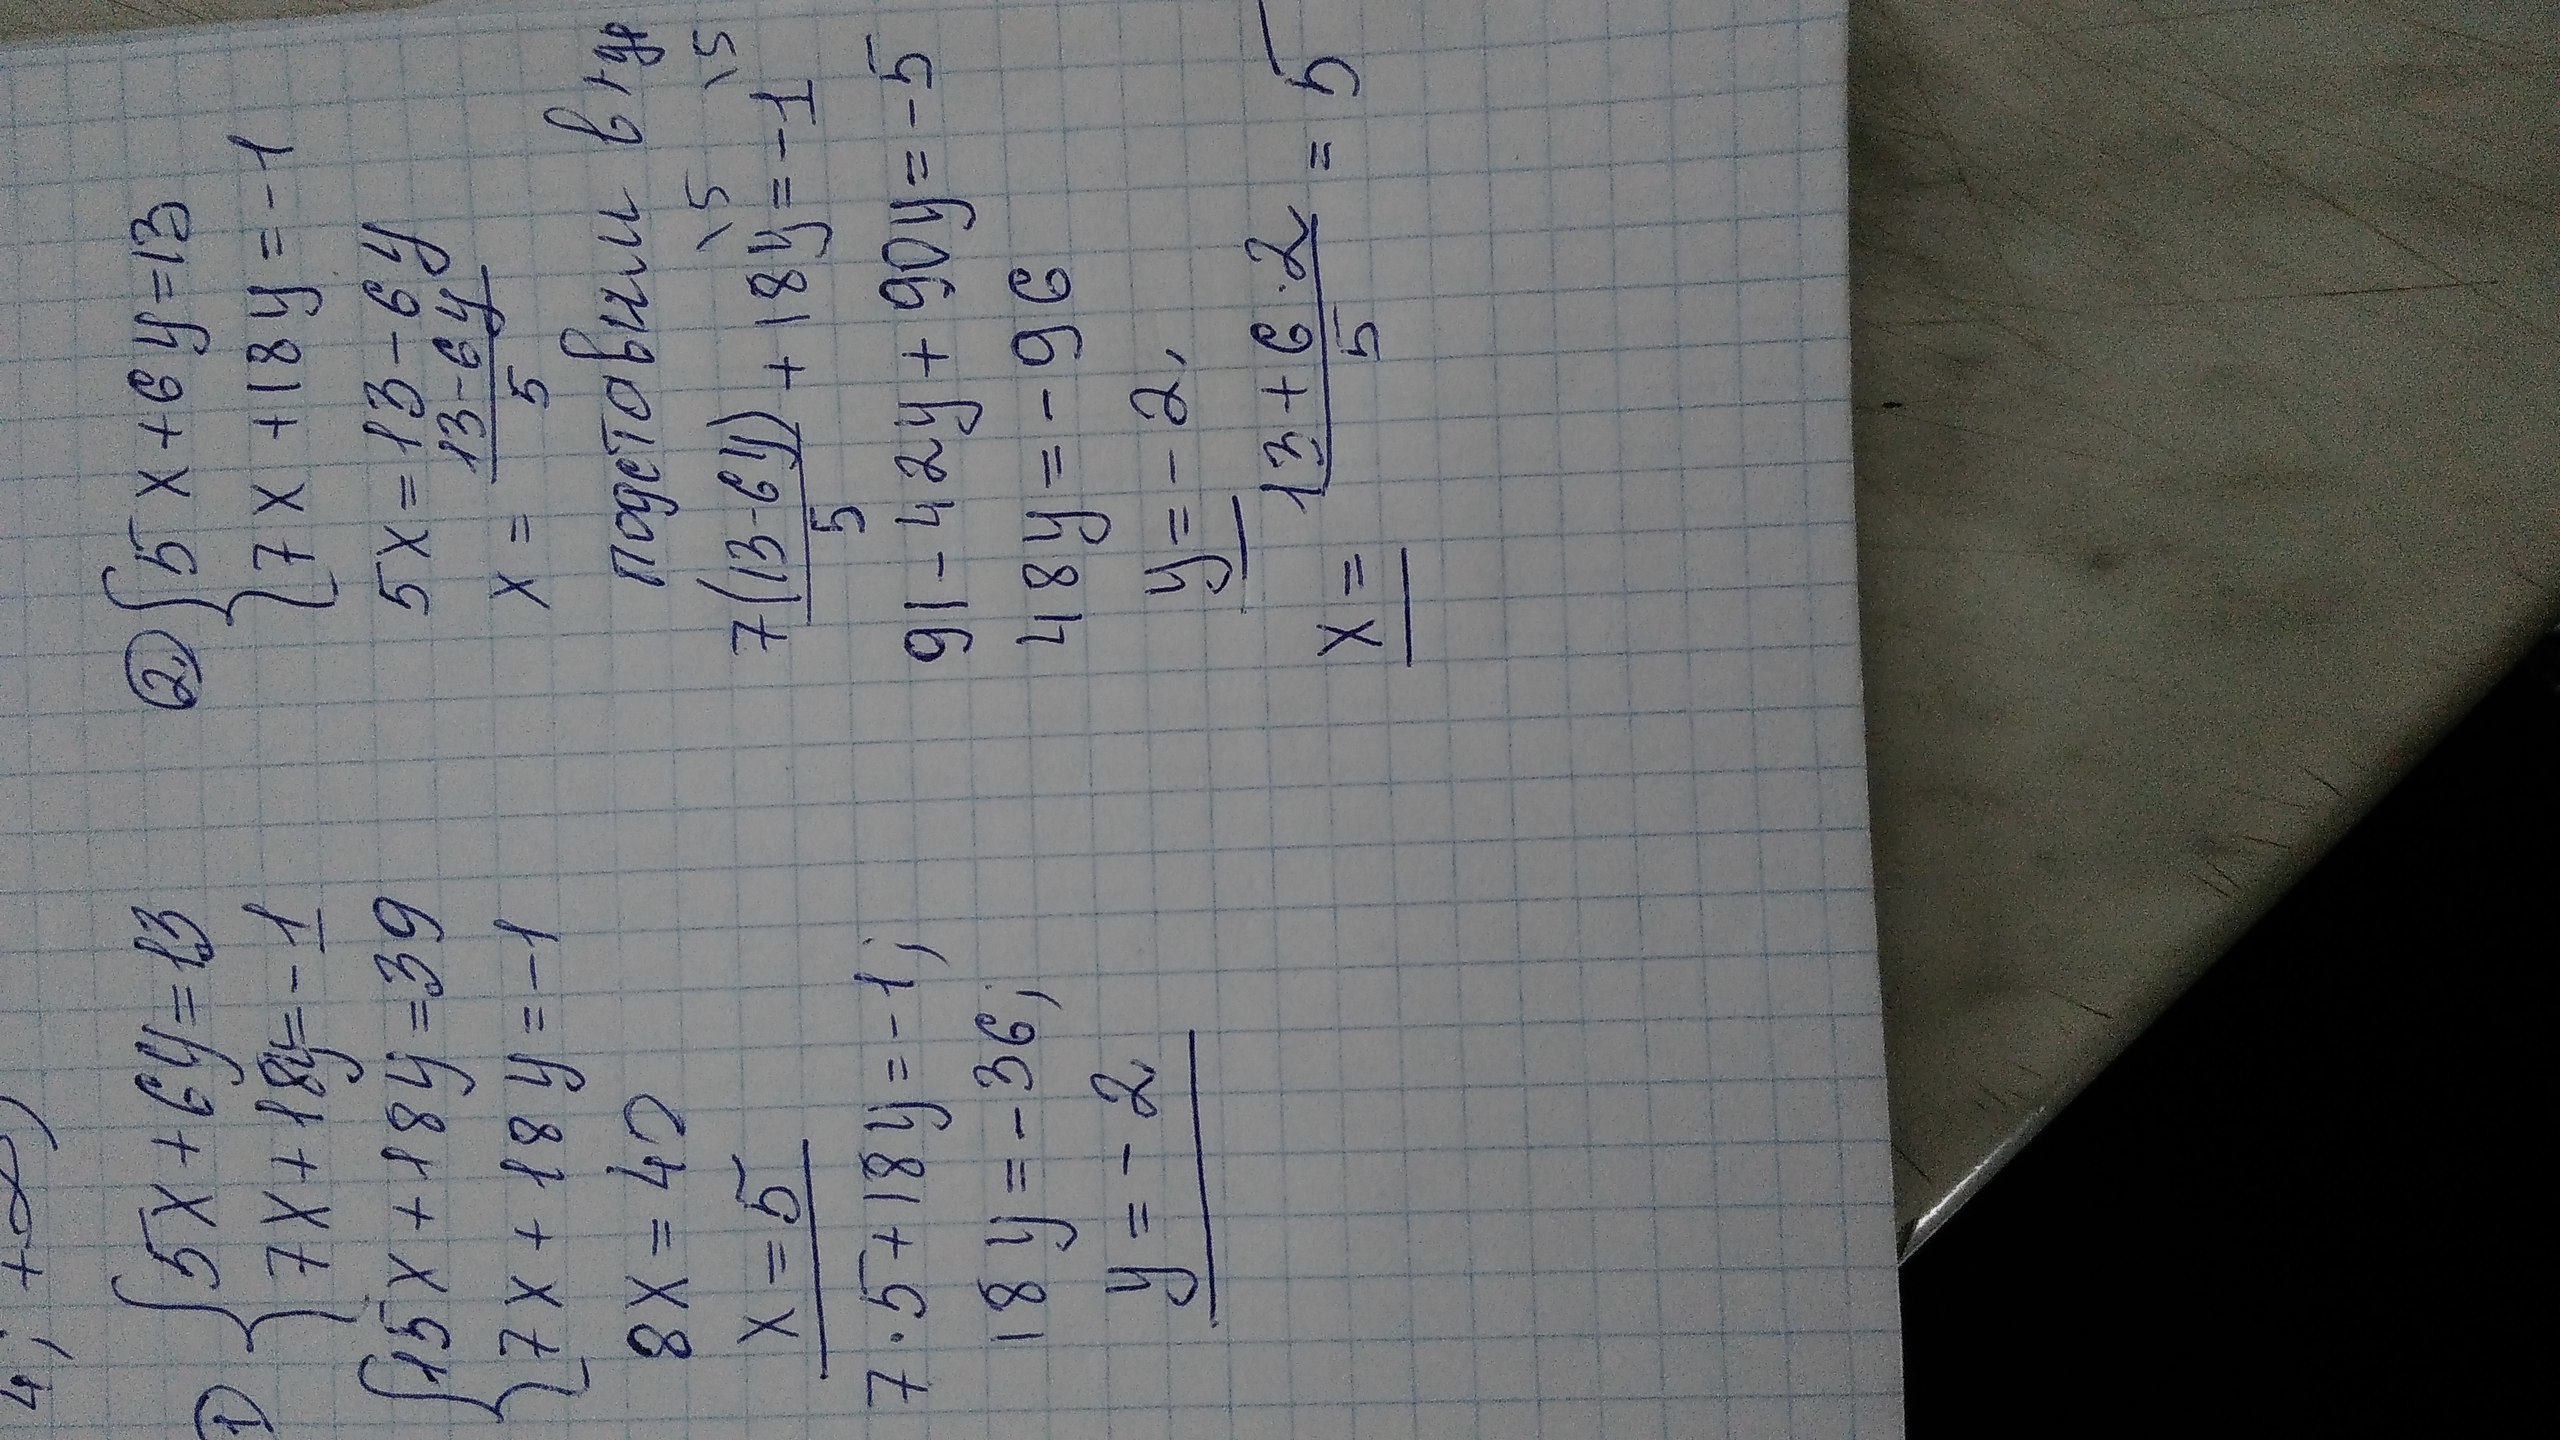 4; +∞)
1) { 5x + 6y = 13
7x + 18y = -1
{ 15x + 18y = 39
7x + 18y = -1
8x = 40
x = 5
7·5 + 18y = -1;
18y = -36;
y = -2
2) { 5x + 6y = 13
7x + 18y = -1
5x = 13 - 6y
x = (13-6y)/5
подставим в
7(13-6y)/5 + 18y \5 = -1 \5
91 - 42y + 90y = -5
48y = -96
y = -2,
x = (13+6·2)/5 = 5